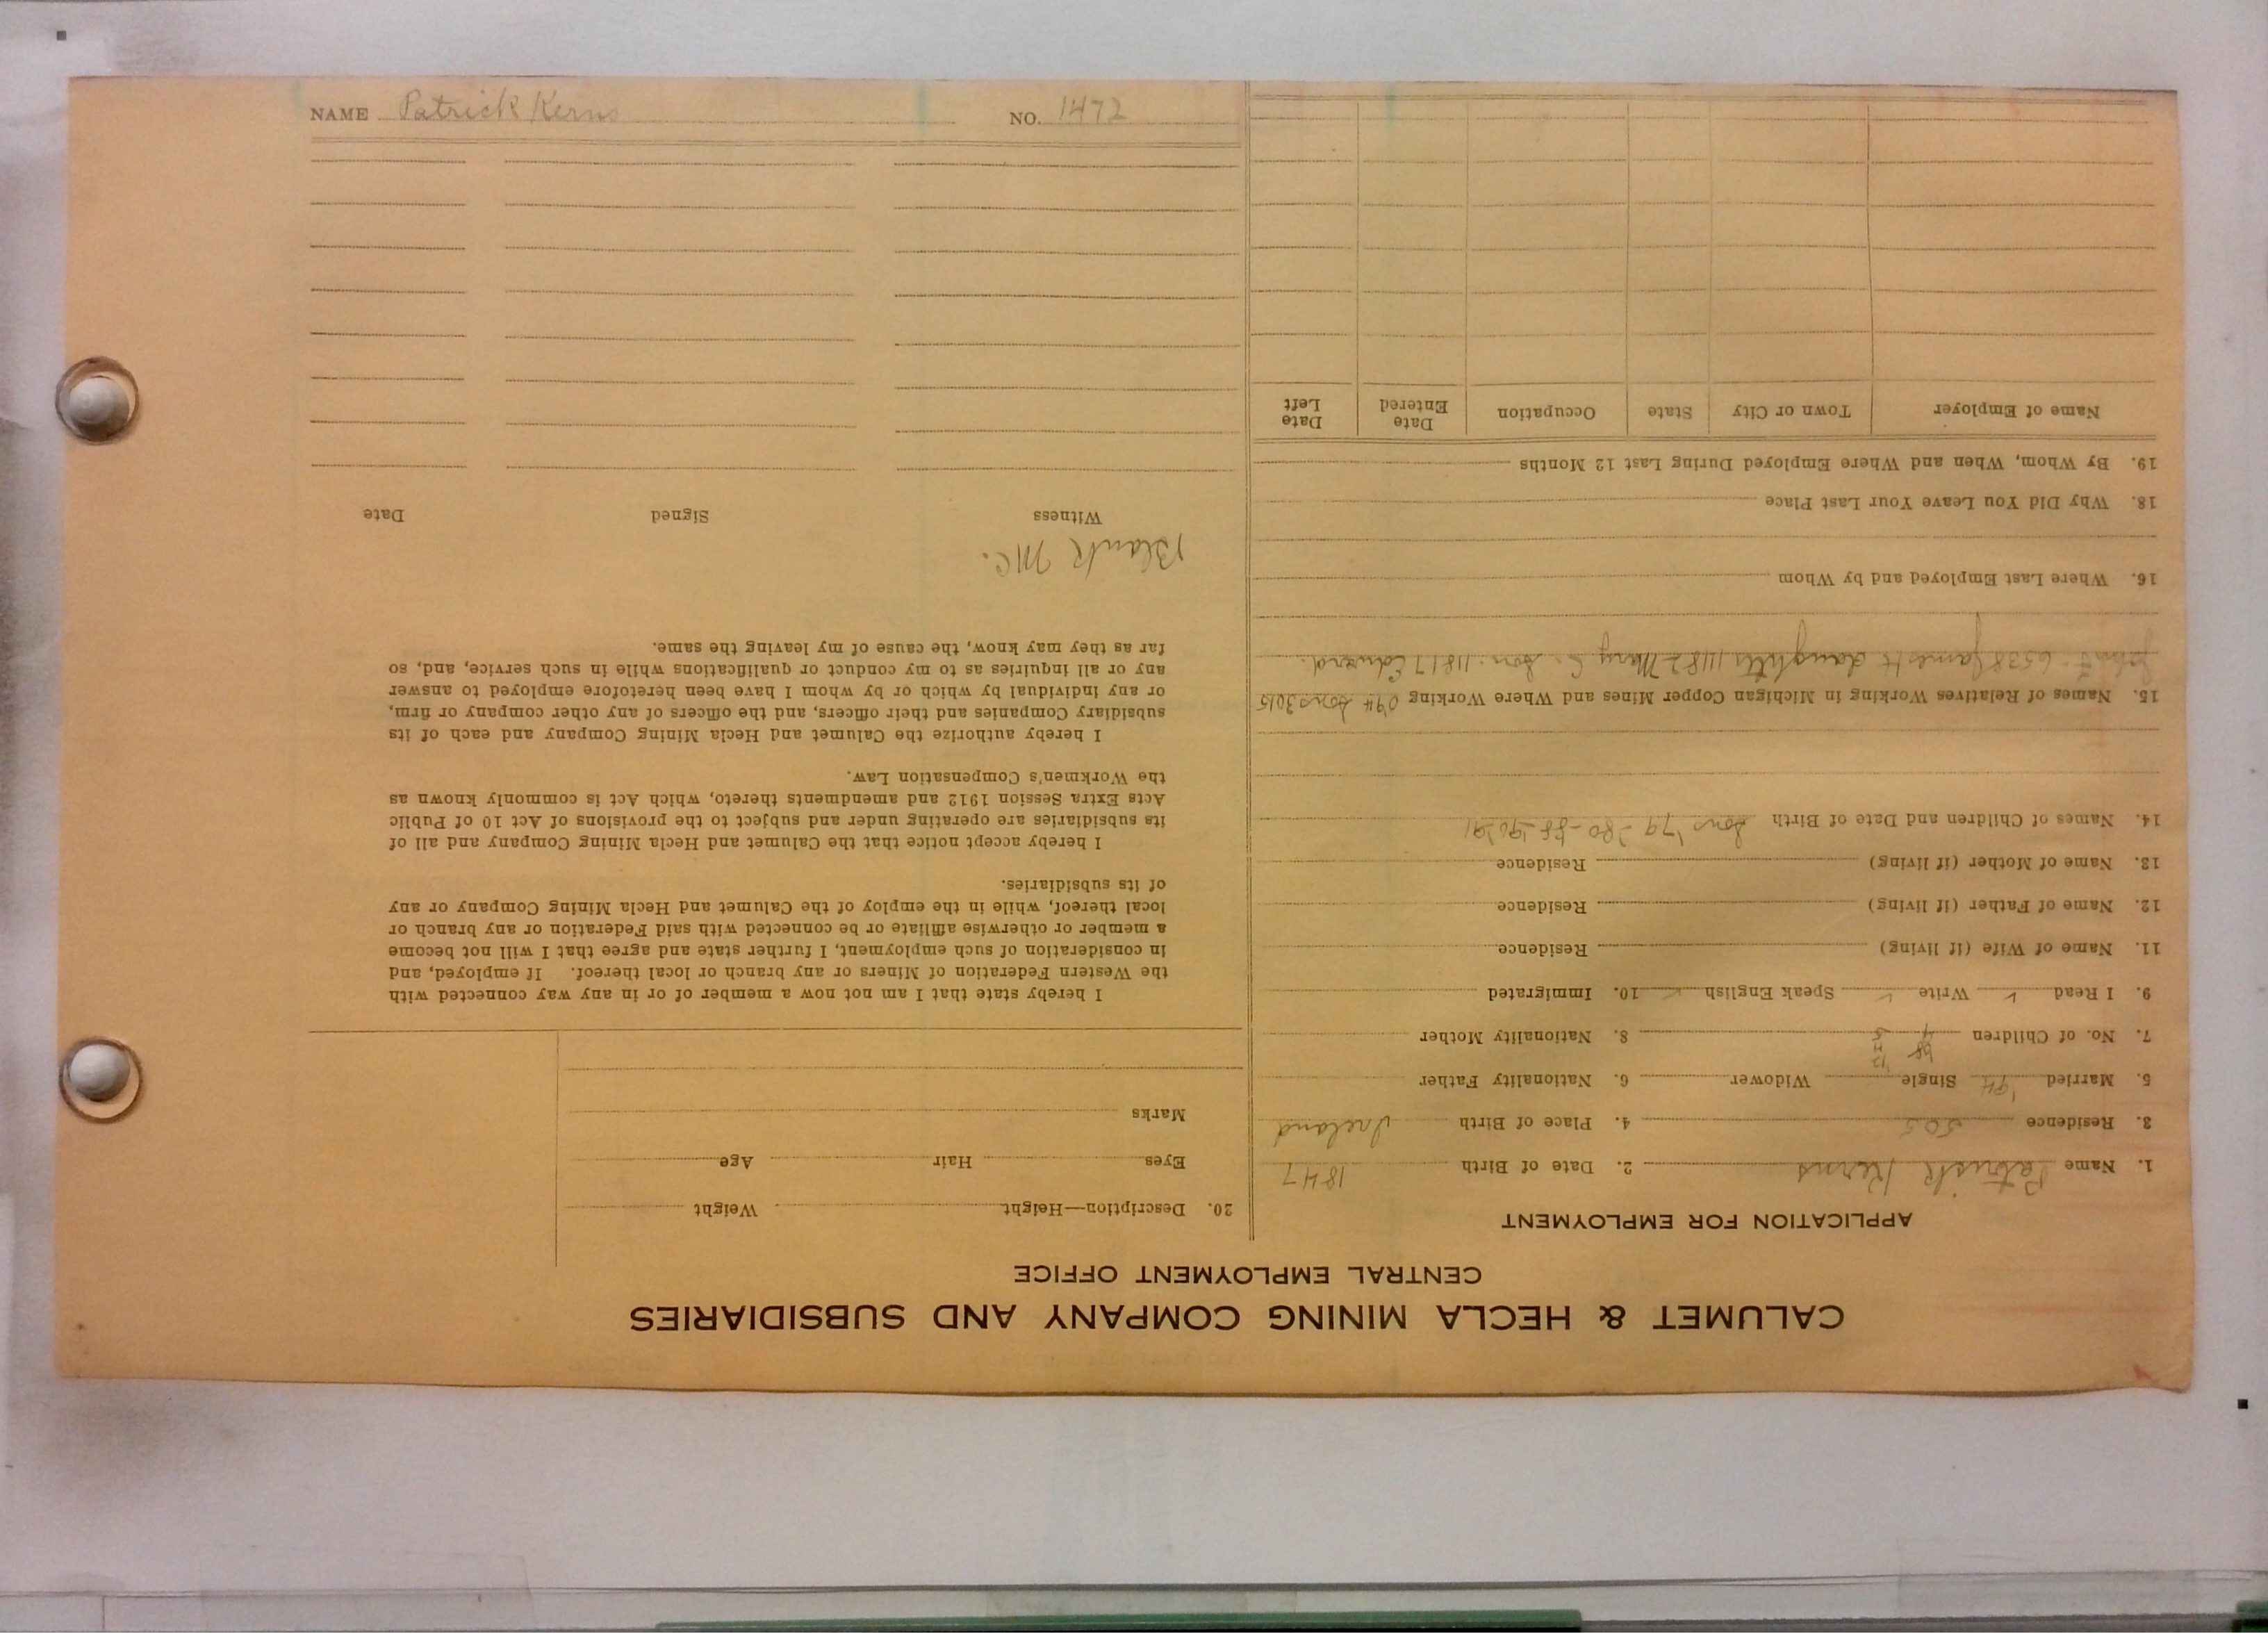 NAME Patrick Kerns NO. 1472
CALUMET & HECLA MINING COMPANY AND SUBSIDIARIES
CENTRAL EMPLOYMENT OFFICE
APPLICATION FOR EMPLOYMENT
1. Name Patrick Kerns 2. Date of Birth 1847
3. Residence 505 4. Place of Birth Ireland
5. Married '94 Single Widower 6. Nationality Father
7. No. of Children 8. Nationality Mother
9. I Read ✓ Write ✓ Speak English ✓ 10. Immigrated
11. Name of Wife (if living) Residence
12. Name of Father (if living) Residence
13. Name of Mother (if living) Residence
14. Names of Children and Date of Birth Sons '79 - '80 - '88 - '90 '91
15. Names of Relatives Working in Michigan Copper Mines and Where Working 094 Sons 3015
6538 James H daughter 11482 Mary C. Son. 11817 Edward.
16. Where Last Employed and by Whom
18. Why Did You Leave Your Last Place
19. By Whom, When and Where Employed During Last 12 Months
Name of Employer Town or City State Occupation Date Entered Date Left
20. Description—Height Weight
Eyes Hair Age
Marks
I hereby state that I am not now a member of or in any way connected with
the Western Federation of Miners or any branch or local thereof. If employed, and
in consideration of such employment, I further state and agree that I will not become
a member or otherwise affiliate or be connected with said Federation or any branch or
local thereof, while in the employ of the Calumet and Hecla Mining Company or any
of its subsidiaries.
I hereby accept notice that the Calumet and Hecla Mining Company and all of
its subsidiaries are operating under and subject to the provisions of Act 10 of Public
Acts Extra Session 1912 and amendments thereto, which Act is commonly known as
the Workmen's Compensation Law.
I hereby authorize the Calumet and Hecla Mining Company and each of its
subsidiary Companies and their officers, and the officers of any other company or firm,
or any individual by which or by whom I have been heretofore employed to answer
any or all inquiries as to my conduct or qualifications while in such service, and, so
far as they may know, the cause of my leaving the same.
Blank MC.
Witness Signed Date